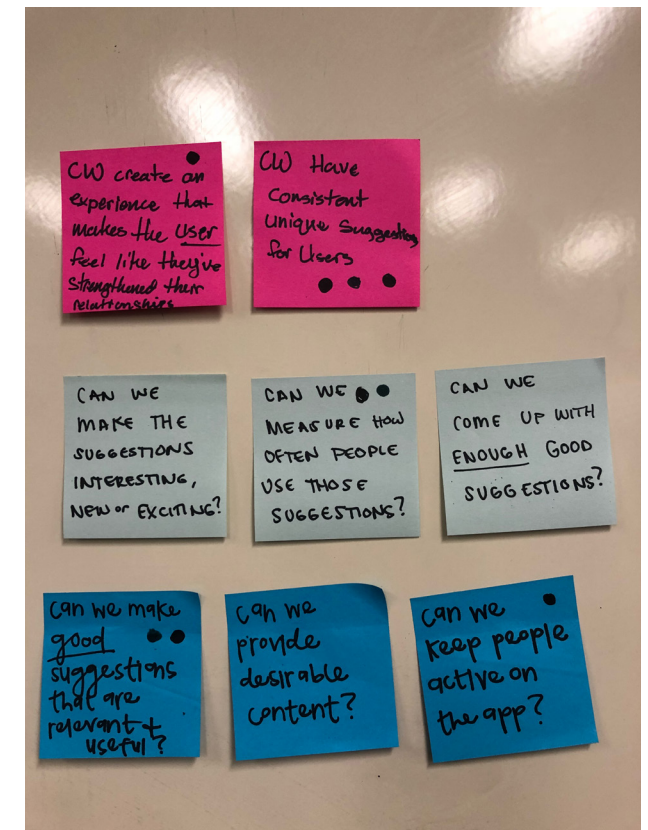 CW create an
experience that
makes the user
feel like they've
strengthened their
relationships
CW Have
Consistent
unique suggestions
for Users
CAN WE
MAKE THE
SUGGESTIONS
INTERESTING,
NEW or EXCITING?
CAN WE
MEASURE HOW
OFTEN PEOPLE
USE THOSE
SUGGESTIONS?
CAN WE
COME UP WITH
ENOUGH GOOD
SUGGESTIONS?
Can we make
good
suggestions
that are
relevant +
useful?
Can we
provide
desirable
content?
Can we
keep people
active on
the app?